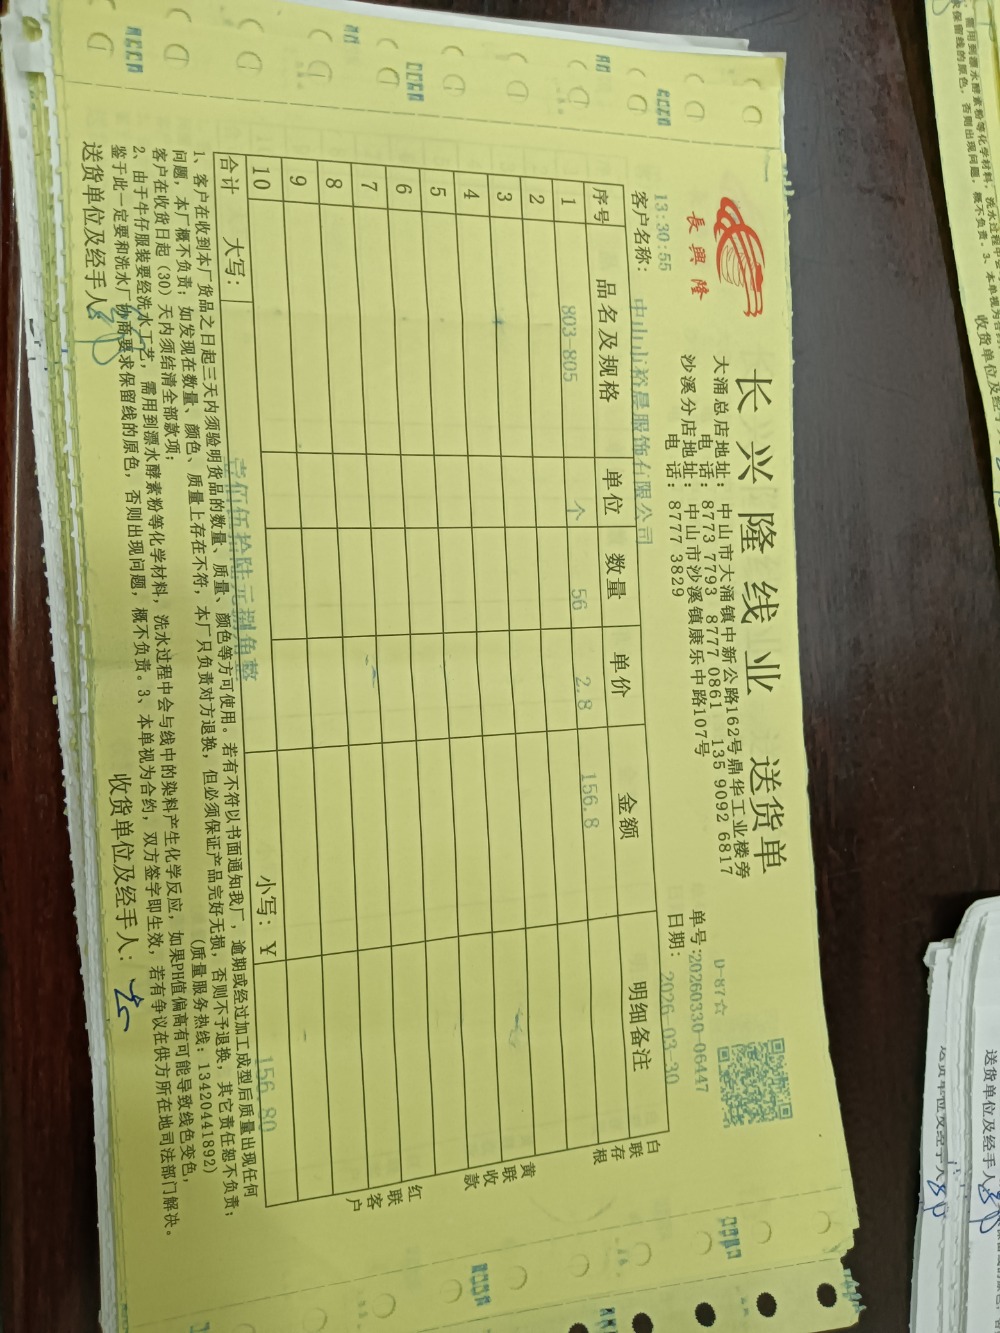 長興隆
长兴隆线业 送货单
大涌总店地址：中山市大涌镇中新公路162号鼎华工业楼旁
电话：8773 7793 8777 0861 135 9092 6817
沙溪分店地址：中山市沙溪镇康乐中路107号
电话：8777 3829
D-87☆
单号:20260330-06447
13:30:55
客户名称：中山市裕晨服饰有限公司
日期：2026-03-30
序号 品名及规格 单位 数量 单价 金额 明细备注
1 803-805 个 56 2.8 156.8
2
3
4
5
6
7
8
9
10
合计 大写：壹佰伍拾陆元捌角整 小写：¥ 156.80
白联存根
黄联收款
红联客户
1、客户在收到本厂货品之日起三天内须验明货品的数量、质量、颜色等方可使用。若有不符以书面通知我厂，逾期或经过加工成型后质量出现任何
问题，本厂概不负责；如发现在数量、颜色、质量上存在不符，本厂只负责对方退换，但必须保证产品完好无损，否则不予退换，其它责任恕不负责；
客户在收货日起（30）天内须结清全部款项； （质量服务热线：13420441892）
2、由于牛仔服装要经洗水工艺，需用到漂水酵素粉等化学材料，洗水过程中会与线中的染料产生化学反应，如果PH值偏高有可能导致线色变色，
鉴于此一定要和洗水厂协商要求保留线的原色，否则出现问题，概不负责。3、本单视为合约，双方签字即生效，若有争议在供方所在地司法部门解决。
送货单位及经手人： 收货单位及经手人：
送货单位及经手人